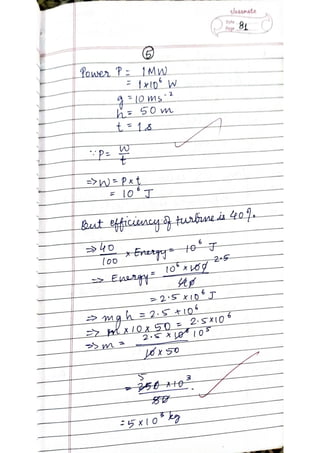 classmate
Date
Page 81
(5)
Power P = 1 MW
= 1×10⁶ W
g = 10 ms⁻²
h = 50 m
t = 1 s
∵ P = W/t
⇒ W = P×t
= 10⁶ J
But efficiency of turbine is 40%.
⇒ 40/100 × Energy = 10⁶ J
⇒ Energy = 10⁶ × 100 / 40 2.5
= 2.5 × 10⁶ J
⇒ mgh = 2.5 + 10⁶
⇒ m × 10 × 50 = 2.5×10⁶
⇒ m = 2.5 × 10⁶ 10⁵ / 10 × 50
= 5 250 × 10³ / 50
= 5 × 10³ kg